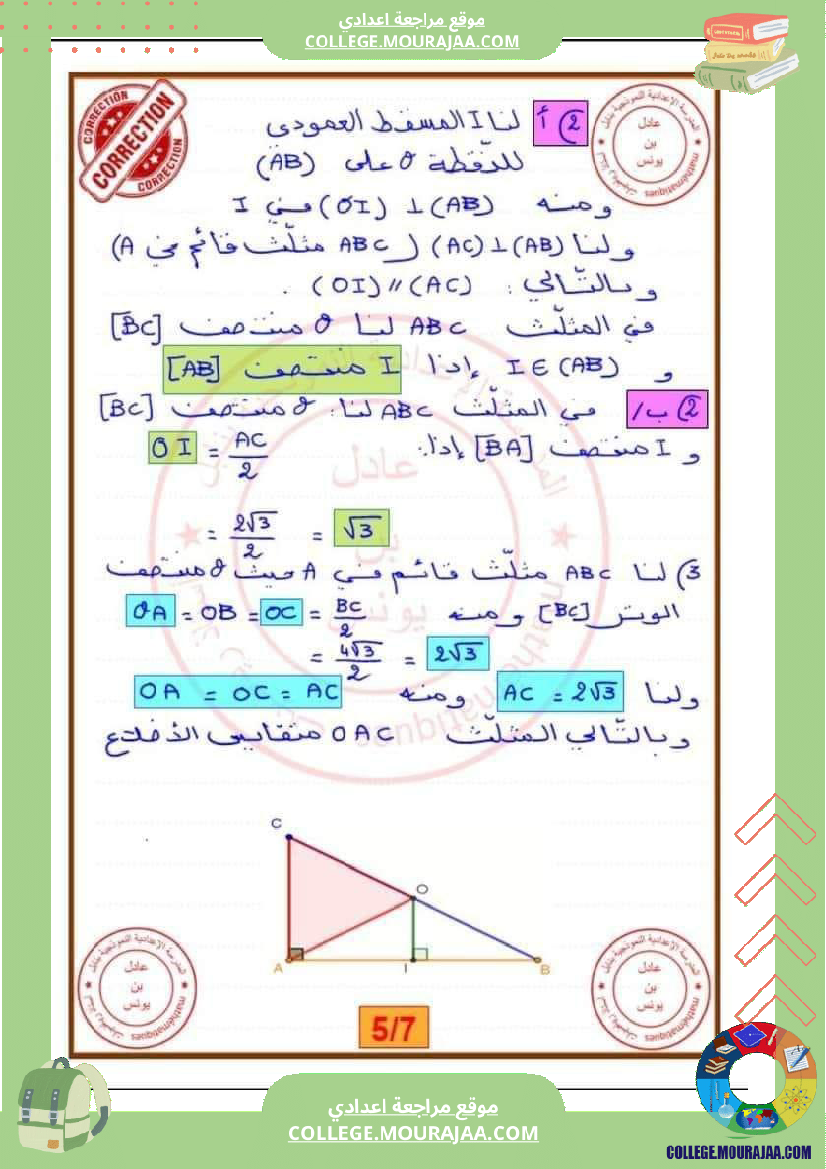 موقع مراجعة اعدادي
COLLEGE.MOURAJAA.COM
CORRECTION
CORRECTION
CORRECTION
عادل
بن
يونس
mathématiques
2) أ لنا I المسقط العمودي
للنقطة O على (AB)
ومنه (AB) ⊥ (OI) في I
ولنا (AB) ⊥ (AC) (ABC مثلّث قائم في A)
وبالتّالي : (AC) // (OI) .
في المثلّث ABC لنا O منتصف [BC]
و I ∈ (AB) إذا I منتصف [AB]
2) ب/ في المثلّث ABC لنا: O منتصف [BC]
و I منتصف [BA] إذا:
OI = AC/2
= 2√3/2 = √3
3) لنا ABC مثلّث قائم في A حيث O منتصف
الوتر [BC] ومنه OA = OB = OC = BC/2
= 4√3/2 = 2√3
ولنا AC = 2√3 ومنه OA = OC = AC
وبالتّالي المثلّث OAC متقايس الأضلاع
عادل
بن
يونس
mathématiques
C
O
A
I
B
عادل
بن
يونس
mathématiques
5/7
عادل
بن
يونس
mathématiques
موقع مراجعة اعدادي
COLLEGE.MOURAJAA.COM
COLLEGE.MOURAJAA.COM